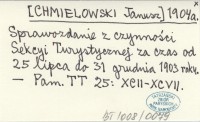 [CHMIELOWSKI Janusz] 1904a.
Sprawozdanie z czynności
Sekcji Turystycznej za czas od
25 lipca do 31 grudnia 1903 roku.
— Pam. TT 25: XCII-XCVII.
BT 1008/0045